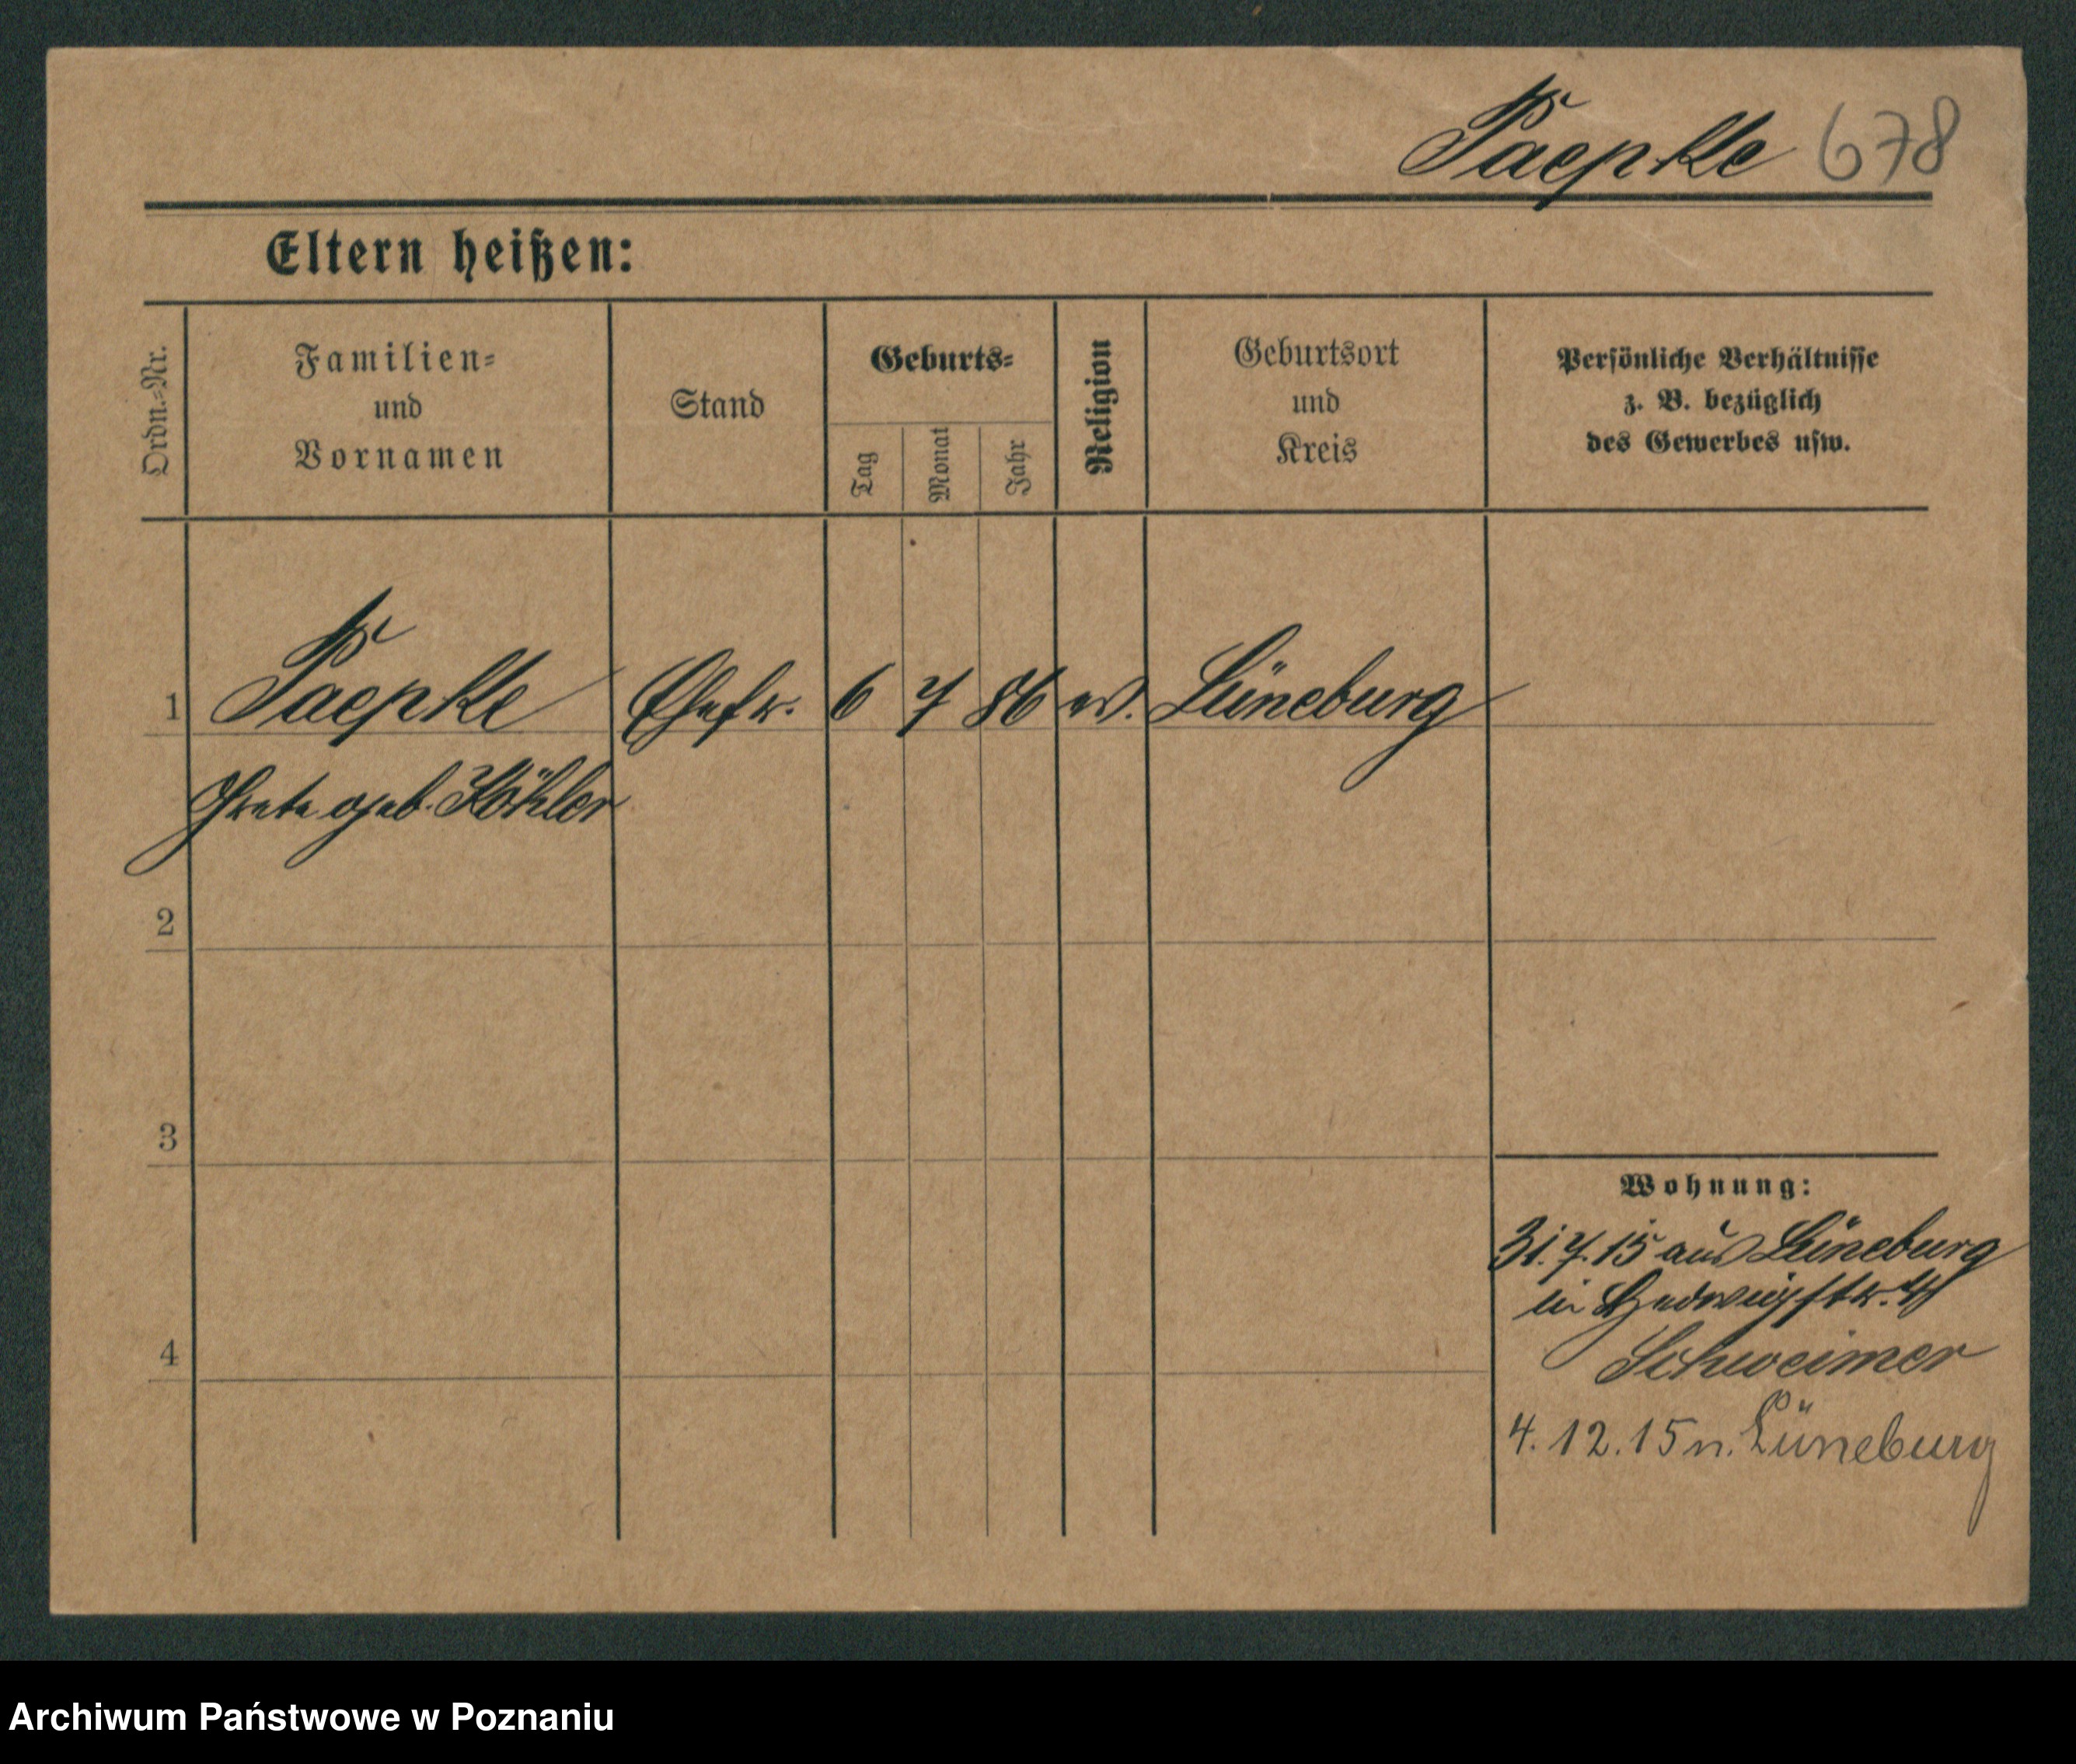 Paepke 678
Eltern heißen:
Ordn.-Nr.
Familien-
und
Vornamen
Stand
Geburts-
Tag
Monat
Jahr
Religion
Geburtsort
und
Kreis
Persönliche Verhältnisse
z. B. bezüglich
des Gewerbes usw.
1 Paepke Ehefr. 6 7 86 ev. Lüneburg
Grete geb. Köhler
2
3
4
Wohnung:
31.7.15 aus Lüneburg
in Hedwigstr.
Schweimer
4.12.15 n. Lüneburg
Archiwum Państwowe w Poznaniu